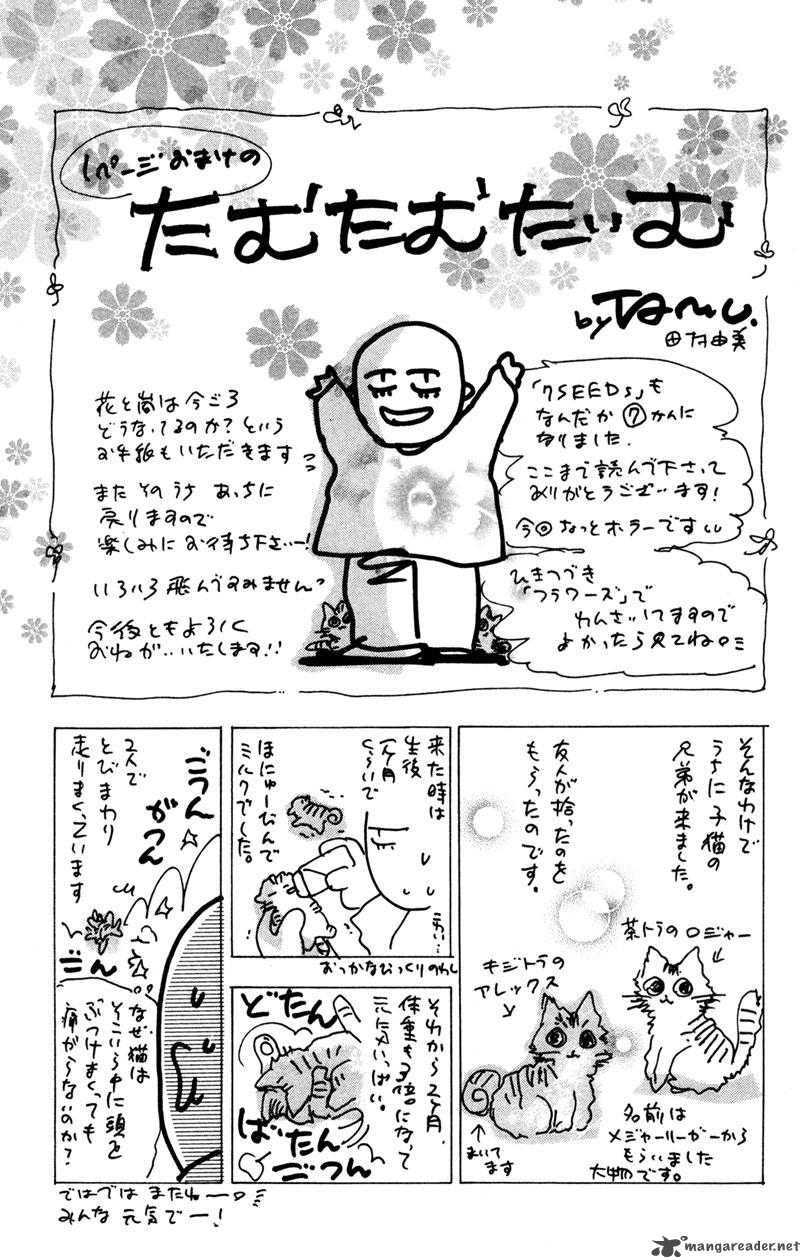 1ページおまけの
たむたむたいむ
by Tamu.
田村由美
「7SEEDS」も
なんだか⑦かんに
なりました.
ここまで読んで下さって
ありがとうございます!
今回なっとホラーですい
ひきつづき
「フラワーズ」で
れんさいしてますので
よかったら見てね
花と嵐は今ごろ
どうなってるのか?という
お手紙もいただきます
またそのうち あっちに
戻りますので
楽しみにお待ち下さい―!
いろいろ飛んですみません
今後ともよろしく
おねがいいたします!!
そんなわけで
うちに子猫の
兄弟が来ました。
友人が拾ったのを
もらったのです。
茶トラのロジャー
キジトラの
アレックス
まいて
ます
名前は
メジャーリーガーから
もらいました
大物です。
来た時は
生後
1ヶ月
くらいで
ほにゅーびんで
ミルクでした。
おっかなびっくりのわし
それから2ヶ月、
体重も3倍になって
元気いっぱい。
どたん
ばたん
ごつん
ごうん
がつん
2人で
とびまわり
走りまくっています
ごん
なぜ猫は
そこいら中に頭を
ぶつけまくっても
痛がらないのか?
ではでは またねー
みんな 元気でー!
mangareader.net